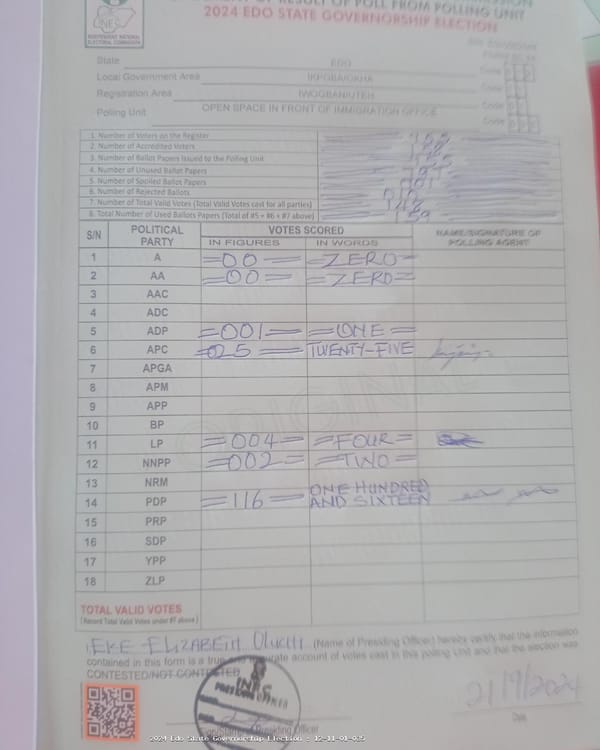 OF RESULT OF POLL FROM POLLING UNIT
2024 EDO STATE GOVERNORSHIP ELECTION
INEC
INDEPENDENT NATIONAL
ELECTORAL COMMISSION
State EDO Code
Local Government Area IKPOBA/OKHA Code
Registration Area IWOGBAN/UTEH Code
Polling Unit OPEN SPACE IN FRONT OF IMMIGRATION OFFICE Code
1. Number of Voters on the Register
2. Number of Accredited Voters
3. Number of Ballot Papers Issued to the Polling Unit
4. Number of Unused Ballot Papers
5. Number of Spoiled Ballot Papers
6. Number of Rejected Ballots
7. Number of Total Valid Votes (Total Valid Votes cast for all parties)
8. Total Number of Used Ballots Papers (Total of #5 + #6 + #7 above)
S/N POLITICAL PARTY VOTES SCORED NAME/SIGNATURE OF POLLING AGENT
IN FIGURES IN WORDS
1 A 00 ZERO
2 AA 00 ZERO
3 AAC
4 ADC
5 ADP 001 ONE
6 APC 025 TWENTY-FIVE
7 APGA
8 APM
9 APP
10 BP
11 LP 004 FOUR
12 NNPP 002 TWO
13 NRM
14 PDP 116 ONE HUNDRED AND SIXTEEN
15 PRP
16 SDP
17 YPP
18 ZLP
TOTAL VALID VOTES
(Record Total Valid Votes under #7 above)
EKE ELIZABETH OLUCHI (Name of Presiding Officer) hereby certify that the information
contained in this form is a true and accurate account of votes cast in this polling Unit and that the election was
CONTESTED/NOT CONTESTED
INEC
PRESIDING OFFICER
21/9/2024
Presiding Officer
Date
2024 Edo State Governorship Election : 12-11-01-035